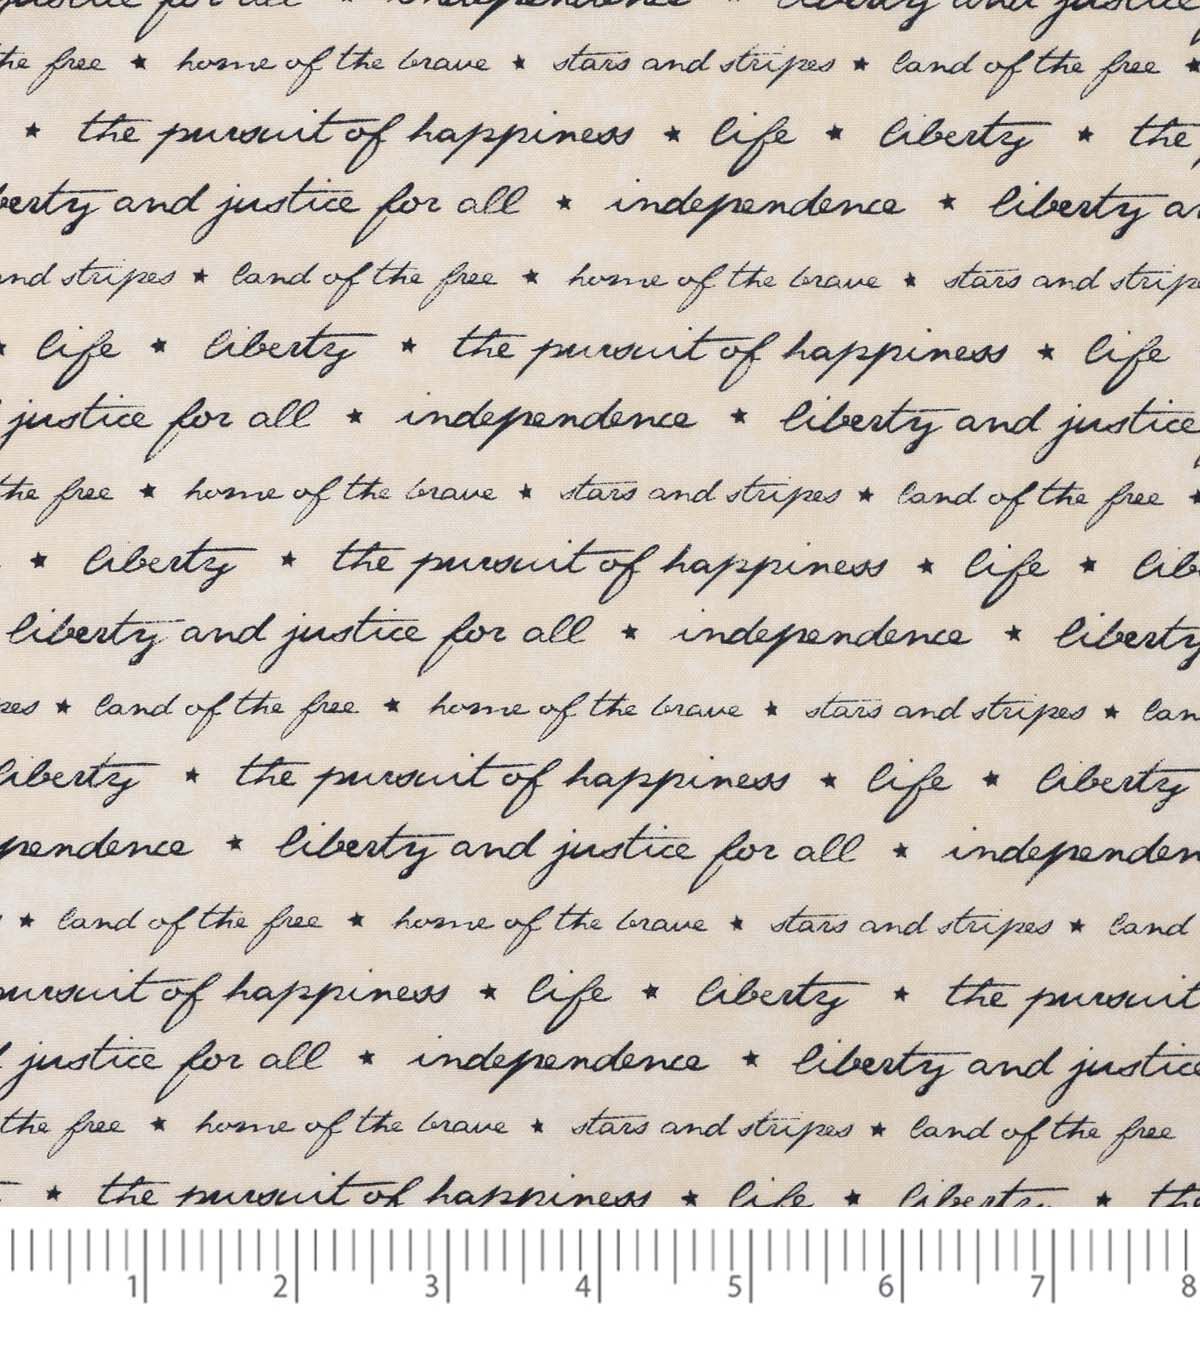 justice for all ★ independence ★ liberty and justice
the free ★ home of the brave ★ stars and stripes ★ land of the free ★
★ the pursuit of happiness ★ life ★ liberty ★ the
berty and justice for all ★ independence ★ liberty an
and stripes ★ land of the free ★ home of the brave ★ stars and stripe
★ life ★ liberty ★ the pursuit of happiness ★ life
justice for all ★ independence ★ liberty and justice
the free ★ home of the brave ★ stars and stripes ★ land of the free ★
★ liberty ★ the pursuit of happiness ★ life ★ lib
liberty and justice for all ★ independence ★ liberty
pes ★ land of the free ★ home of the brave ★ stars and stripes ★ lan
liberty ★ the pursuit of happiness ★ life ★ liberty
pendence ★ liberty and justice for all ★ independen
★ land of the free ★ home of the brave ★ stars and stripes ★ land
pursuit of happiness ★ life ★ liberty ★ the pursuit
justice for all ★ independence ★ liberty and justice
the free ★ home of the brave ★ stars and stripes ★ land of the free
★ the pursuit of happiness ★ life ★ liberty ★ the
1 2 3 4 5 6 7 8